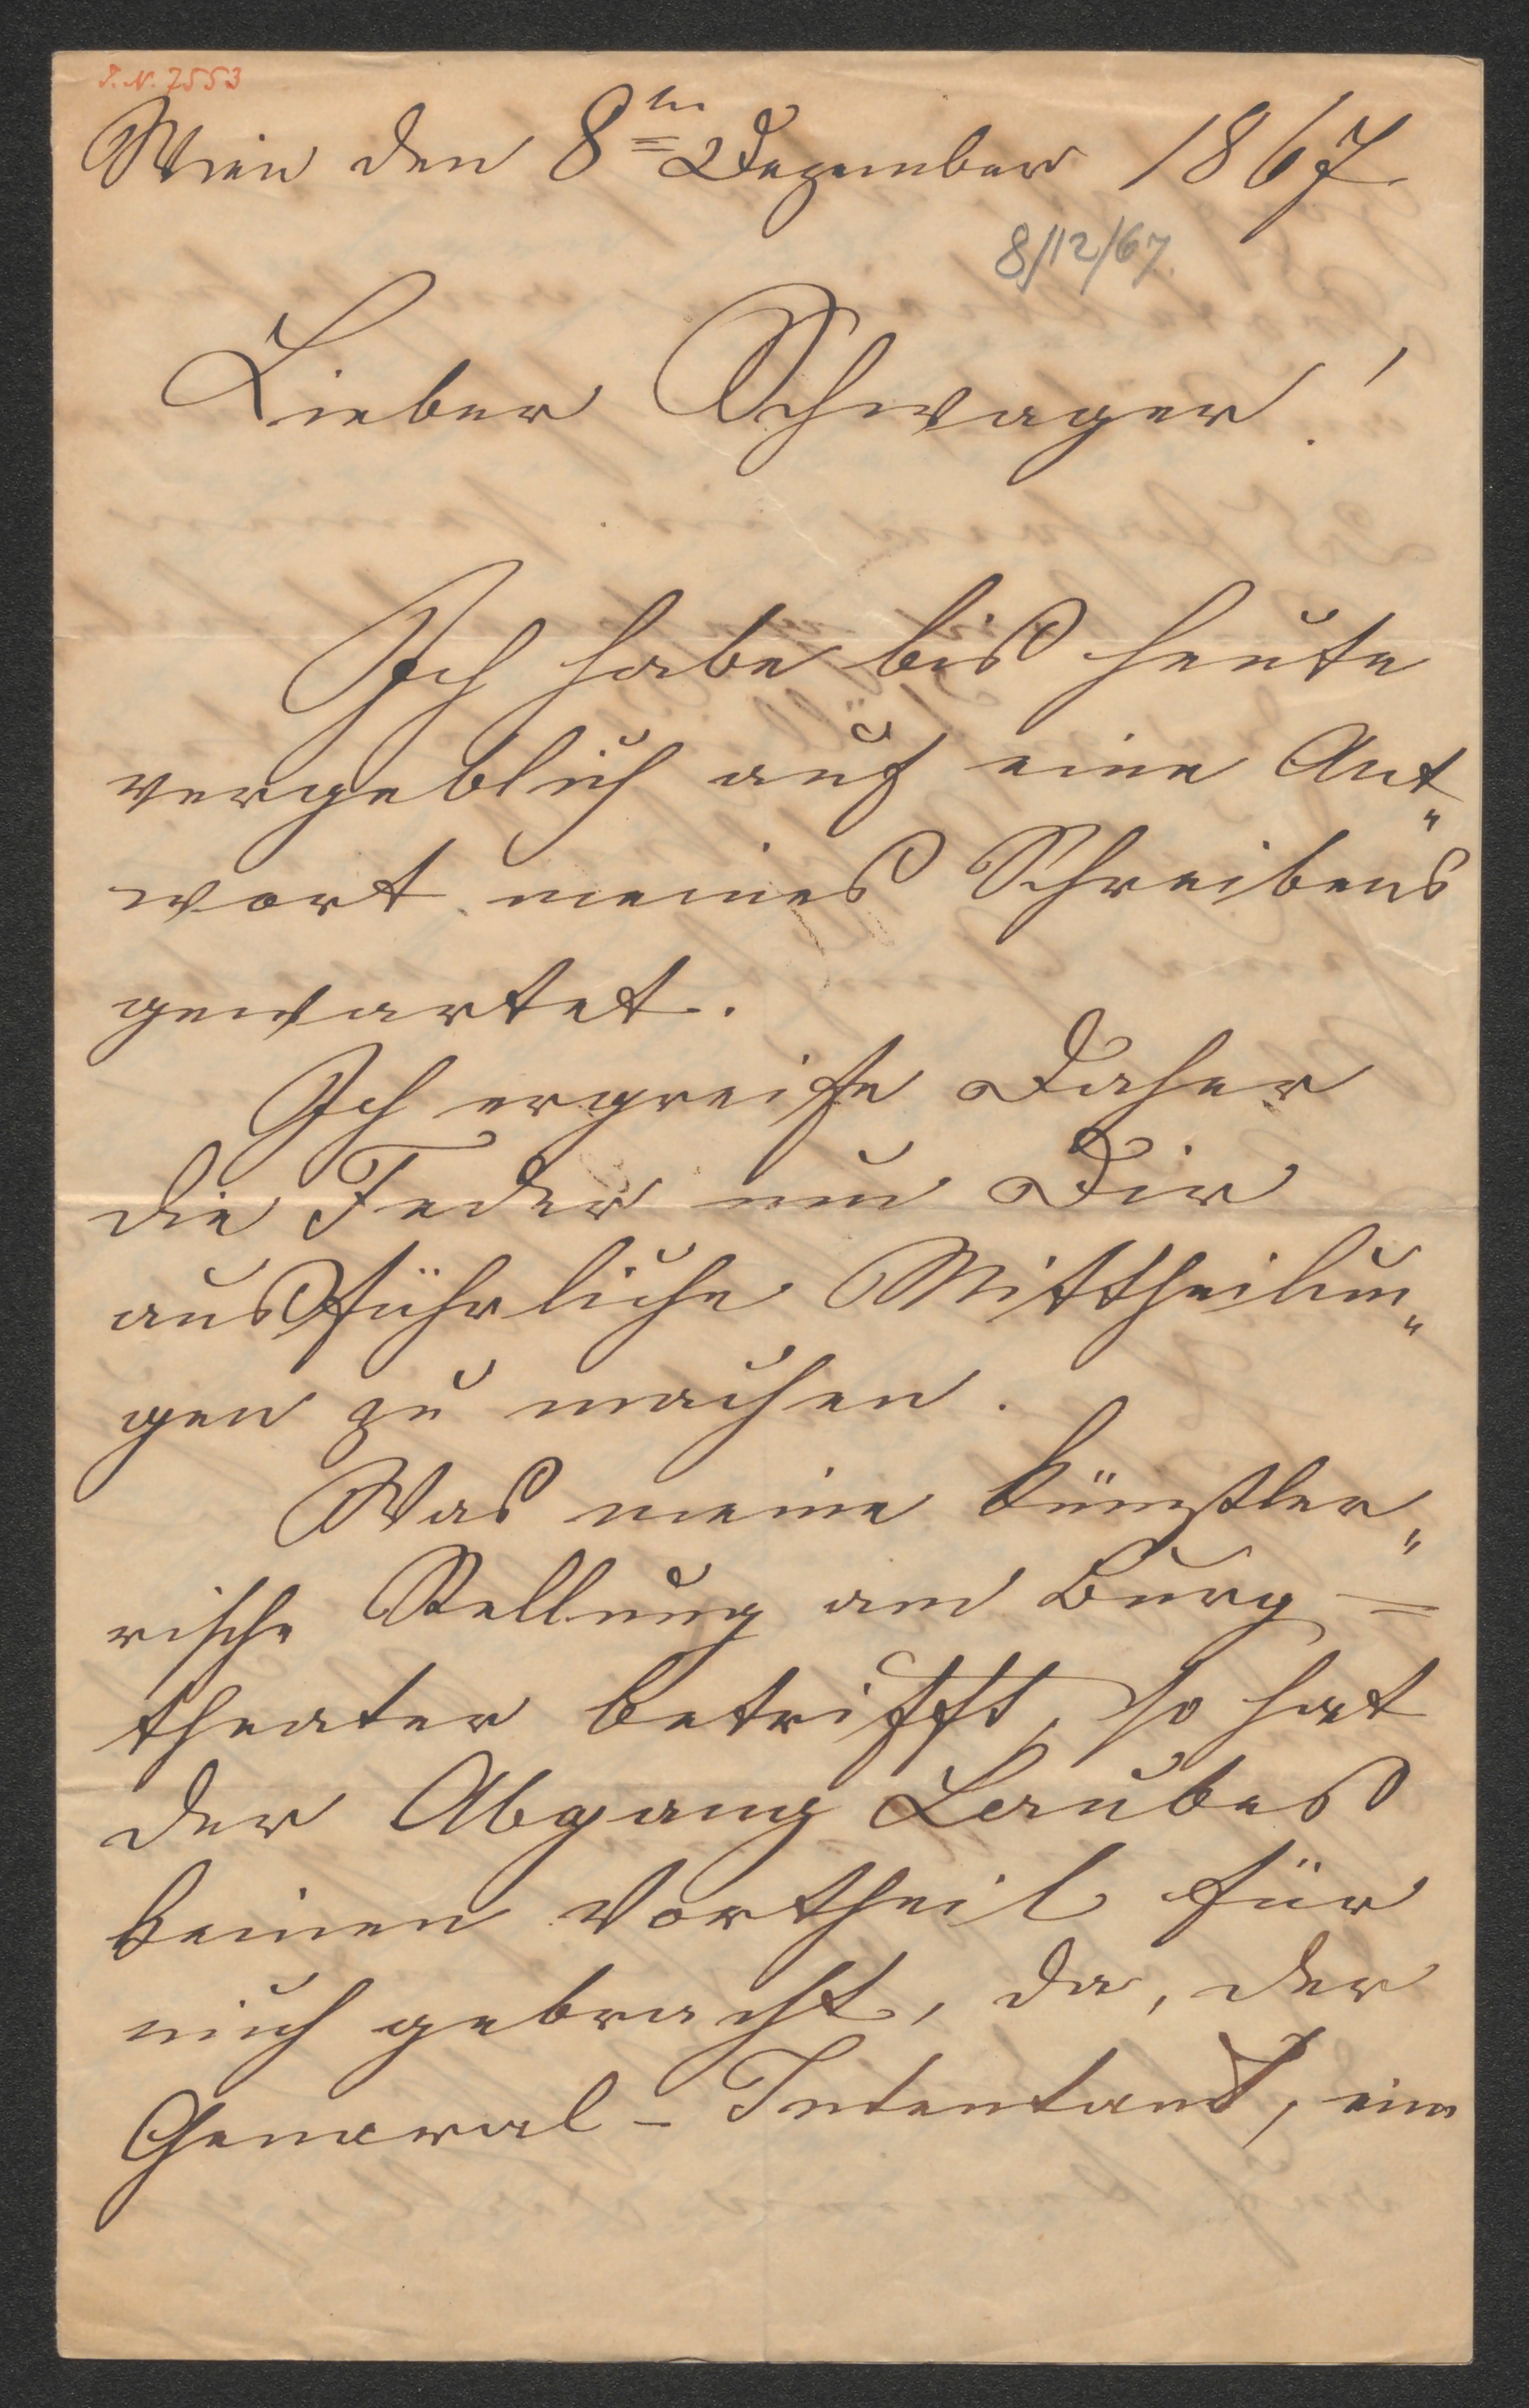 I. N. 7553
Wien den 8ten Dezember 1867
8/12/67.
Lieber Schwager!
Ich habe bis heute
vergeblich auf eine Ant„
wort meines Schreibens
gewartet.
Ich ergreife daher
die Feder um Dir
ausführliche Mittheilun„
gen zu machen.
Was meine künstler„
rische Stellung am Burg=
theater betrifft, so hat
der Abgang Laubes
keinen Vortheil für
mich gebracht, da, der
General-Intentant, ein